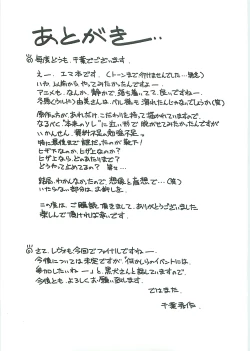 あとがき…
◎毎度どうも、千葉でございます。
えー、エマ本です。(トーンまで付けませんでした…残念)
いや、以前からやってみたかったんですよー。
アニメも、なんか、静かで、落ち着いてて、良いですねー。
原作の方が、あれだけこだわりを持って描かれていますので、
なるべく"本来のソレ"に近い形で脱がせてみたかったんですが
いかんせん、資料不足&勉強不足。
特に最後まで謎だったのが靴下!
ヒザ下なのか、ヒザ上なのか?
ヒザ上なら、どのあたりまで?
どうやって止めてるの? 等々…
結局、わかんなかったので、想像と妄想で…(笑)
いたらない部分は、ご勘弁を。
この度は、ご購読頂きまして、ありがとうございました。
楽しんで頂ければ幸いです。
◎さて、しろも今回でファイナルですねー。
今後については未定ですが、「何かしらのイベントには、
参加したいねー」と、黒犬さんと話していますので、
今後とも、よろしくお願い致します。
ではまた。
千葉秀作